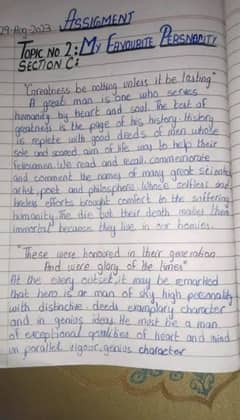 29-Aug-2023 ASSIGMENT
TOPIC NO 2: MY FAVOURITE PERSNALITY
SECTION C:
"Greatness be nothing unless it be lasting"
A great man is one who serves
humanity by heart and soul. The best of
greatness is the page of his history. History
is replete with good deeds of men whose
sole and scared aim of life was to help their
fellowmen. We read and recall, commemorate
and comment the names of many great scientist
artist, poet and philosphers. Whose selfless and
tireless efforts brought comfort to the suffering
humanity. The die but their death makes them
immortal because they live in our homies.
"These were honoured in their generation
And were glory of the times"
At the very outset, it may be remarked
that hero is ar man of sky high personality
with distinctive deeds examplary character
and in genius ideas. He must be a man
of exceptional qualities of heart and mind
un parallel vigour, genius character